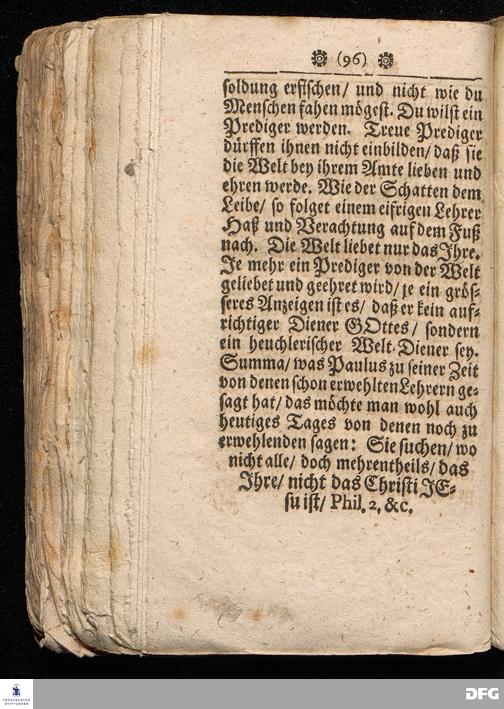 (96)
soldung erfischen/ und nicht wie du
Menschen fahen mögest. Du wilst ein
Prediger werden. Treue Prediger
dürffen ihnen nicht einbilden/ daß sie
die Welt bey ihrem Amte lieben und
ehren werde. Wie der Schatten dem
Leibe/ so folget einem eifrigen Lehrer
Haß und Verachtung auf dem Fuß
nach. Die Welt liebet nur das Ihre.
Je mehr ein Prediger von der Welt
geliebet und geehret wird/ je ein grös-
seres Anzeigen ist es/ daß er kein auf-
richtiger Diener GOttes/ sondern
ein heuchlerischer Welt-Diener sey.
Summa/ was Paulus zu seiner Zeit
von denen schon erwehlten Lehrern ge-
sagt hat/ das möchte man wohl auch
heutiges Tages von denen noch zu
erwehlenden sagen: Sie suchen/ wo
nicht alle/ doch mehrentheils/ das
Ihre/ nicht das Christi JE-
su ist/ Phil. 2, &c.
FRANCKESCHE
STIFTUNGEN
DFG